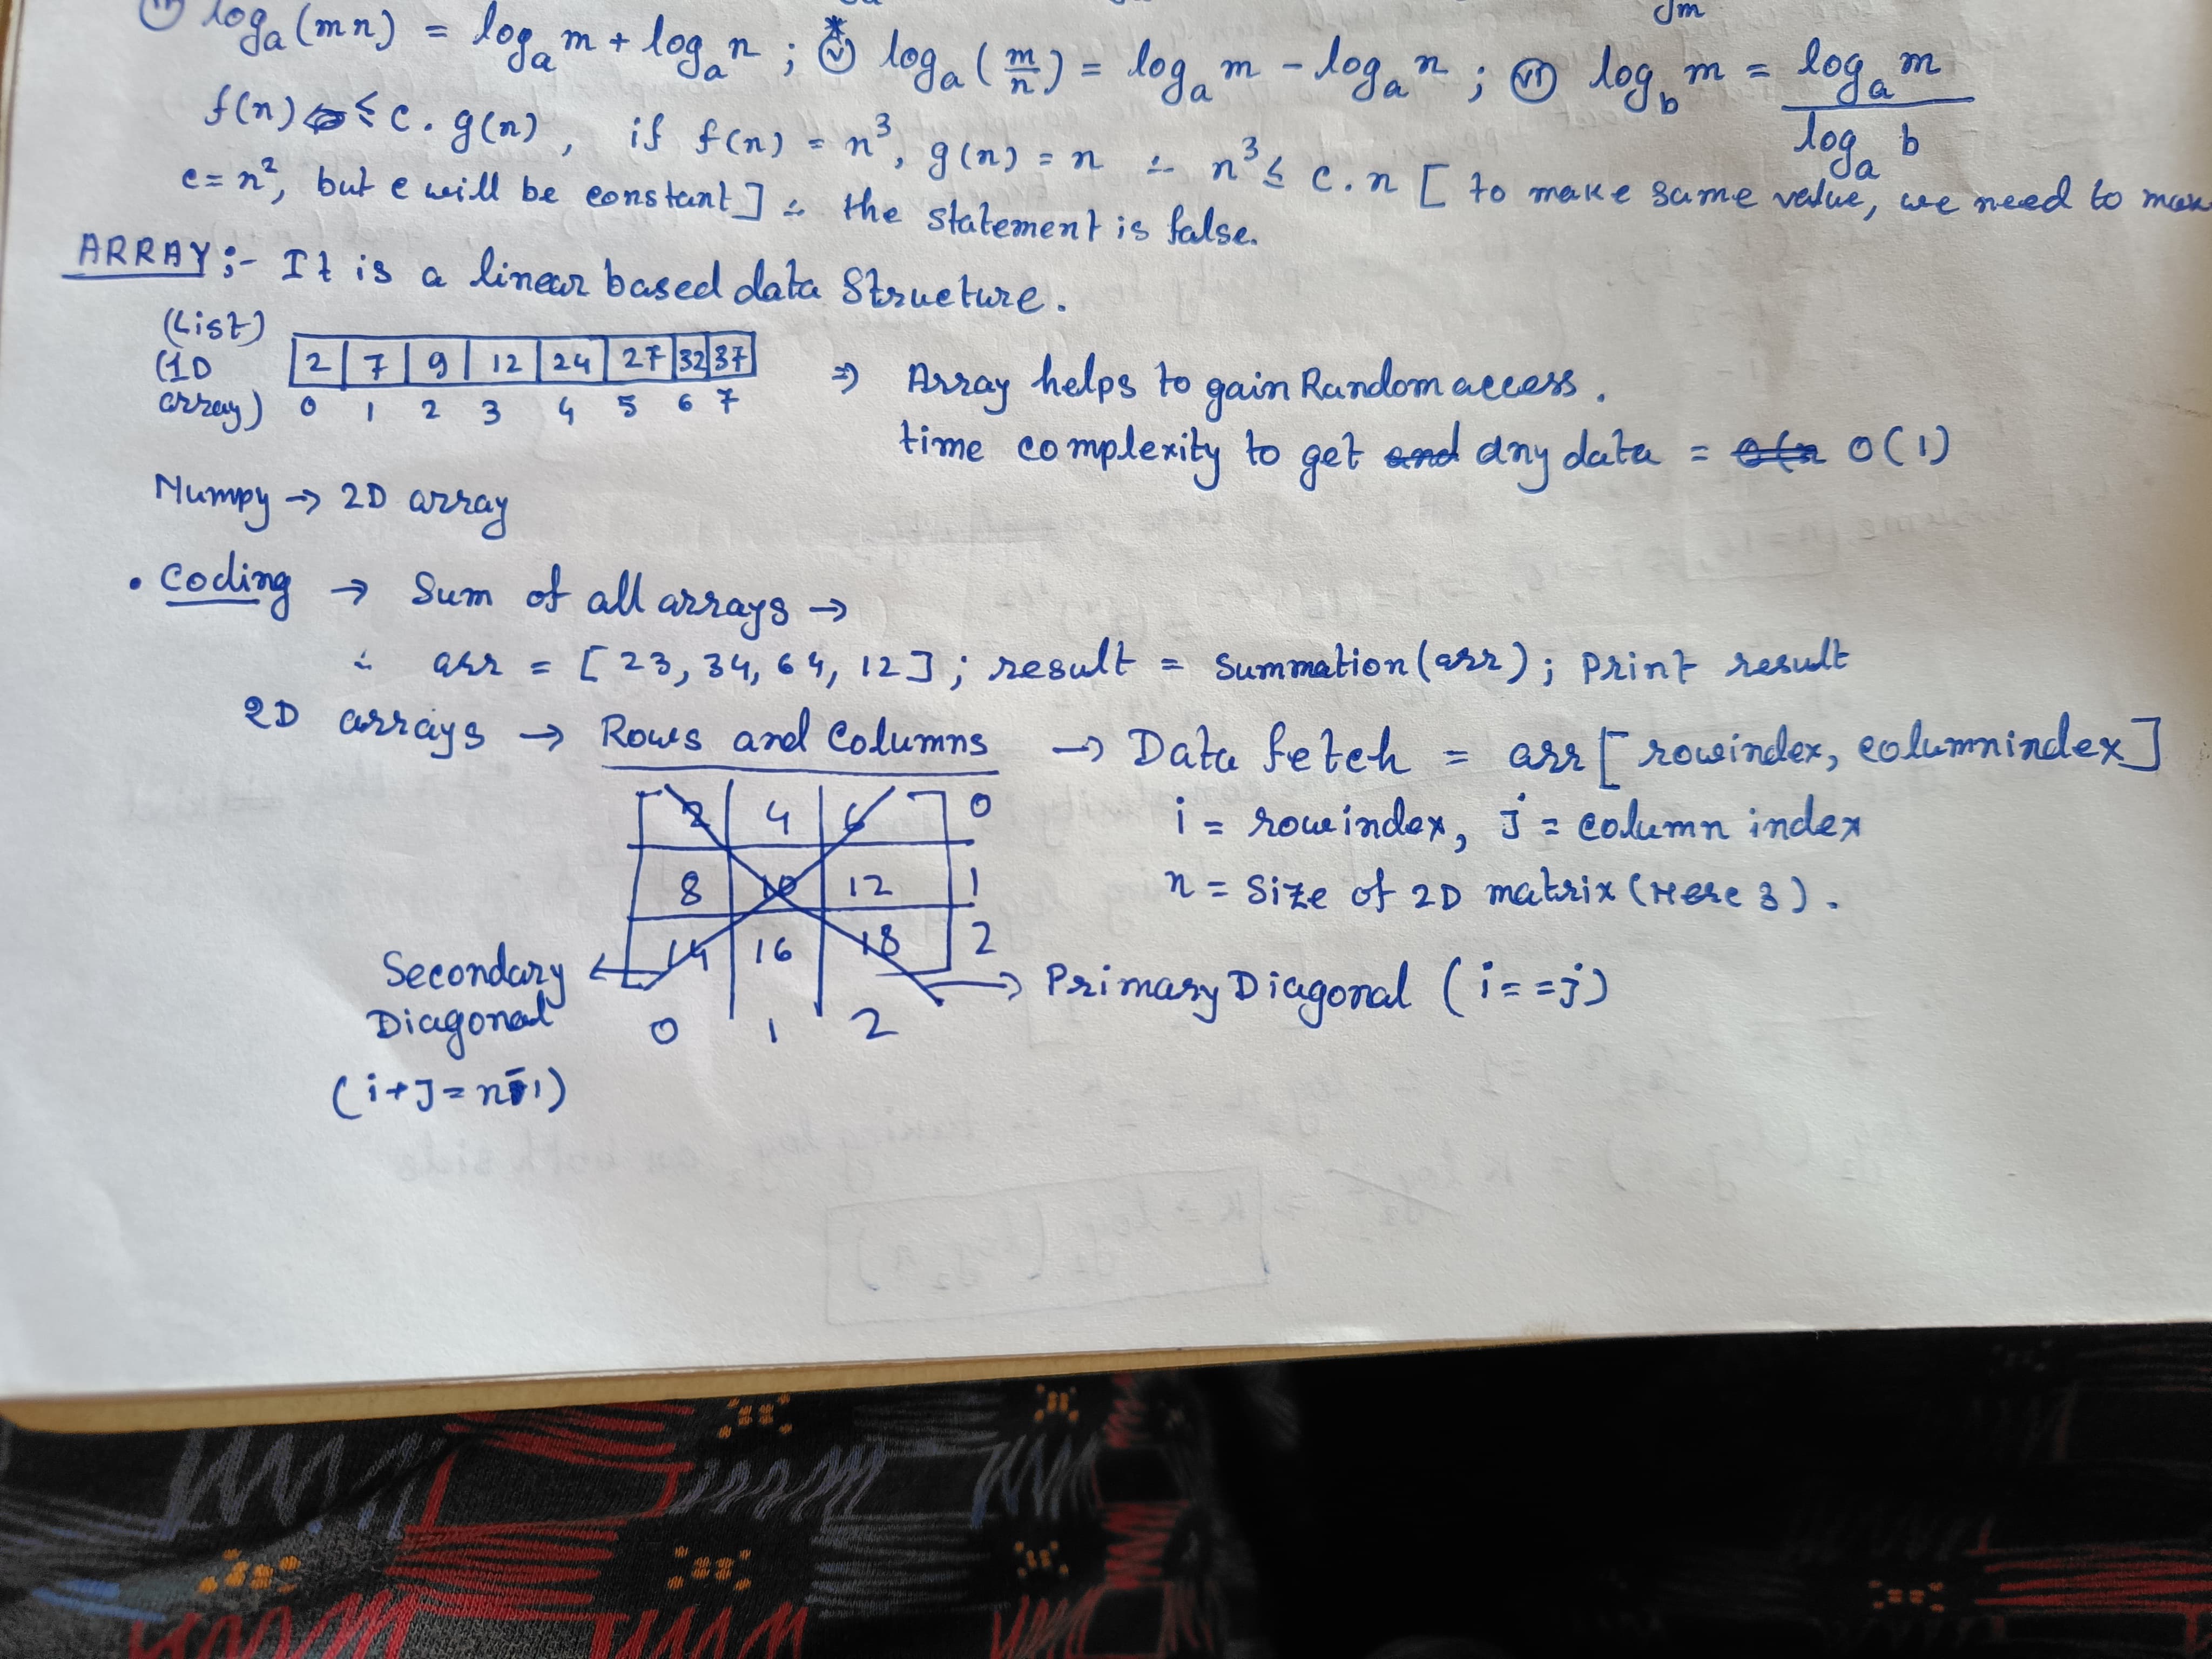 log_a(mn) = log_a m + log_a n ; * (v) log_a (m/n) = log_a m - log_a n ; (vi) log_b m = log_a m / log_a b
f(n) ≤ c . g(n), if f(n) = n³, g(n) = n ∴ n³ ≤ c.n [ to make same value, we need to
c = n², but c will be constant] ∴ the statement is false.
ARRAY :- It is a linear based data Structure.
(List)
(1D array)
2 7 9 12 24 27 32 37
0 1 2 3 4 5 6 7
⇒ Array helps to gain Random access.
time complexity to get any data = O(1)
Numpy → 2D array
• Coding → Sum of all arrays →
∴ arr = [ 23, 34, 64, 12 ] ; result = Summation(arr) ; Print result
2D arrays → Rows and Columns → Data fetch = arr[ rowindex, columnindex]
2 4 6 0
8 10 12 1
14 16 18 2
0 1 2
i = rowindex, j = column index
n = Size of 2D matrix (Here 3).
Secondary Diagonal
(i+J = n-1)
Primary Diagonal (i==j)